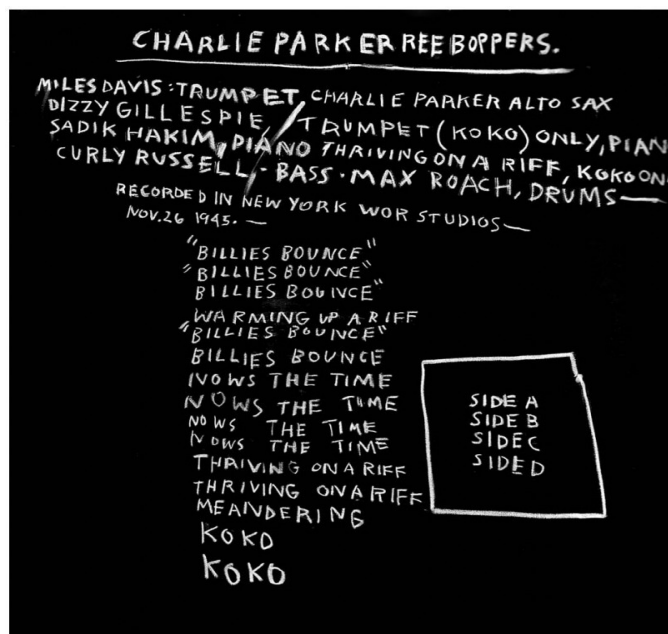 CHARLIE PARKER REEBOPPERS.
MILES DAVIS: TRUMPET, CHARLIE PARKER ALTO SAX
DIZZY GILLESPIE, TRUMPET (KOKO) ONLY, PIAN
SADIK HAKIM, PIANO THRIVING ON A RIFF, KOKO ON
CURLY RUSSELL - BASS · MAX ROACH, DRUMS—
RECORDED IN NEW YORK WOR STUDIOS—
NOV. 26 1945. —
"BILLIES BOUNCE"
"BILLIES BOUNCE"
BILLIES BOUNCE"
WARMING UP A RIFF
"BILLIES BOUNCE"
BILLIES BOUNCE
NOWS THE TIME
NOWS THE TIME
NOWS THE TIME
NOWS THE TIME
THRIVING ON A RIFF
THRIVING ON A RIFF
MEANDERING
KOKO
KOKO
SIDE A
SIDE B
SIDE C
SIDE D